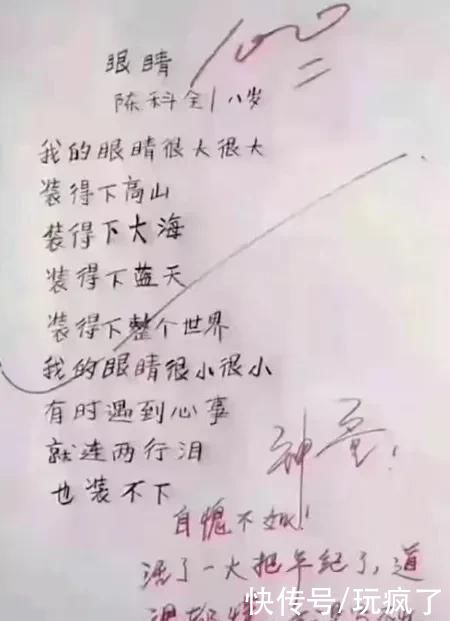 100
眼睛
陈科全 八岁
我的眼睛很大很大
装得下高山
装得下大海
装得下蓝天
装得下整个世界
我的眼睛很小很小
有时遇到心事
就连两行泪
也装不下
神童!
自愧不如!
活了一大把年纪了,道
快传号/玩疯了